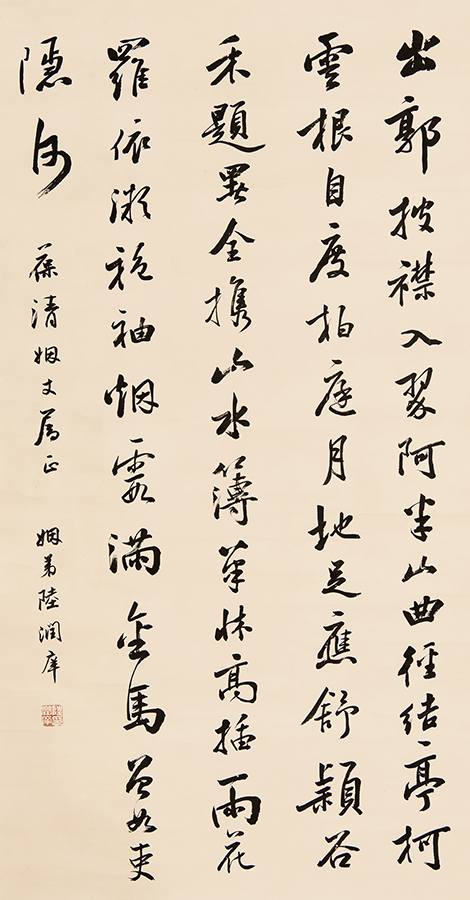 出郭披襟入翠阿半山曲徑結亭柯
雲根自度柏庭月地足應舒穎谷
禾題全攜山水簿筆牀高插雨花
羅依袍袖烟霞滿金馬曾如吏
隱何
葆清姻丈屬正 姻弟陸潤庠